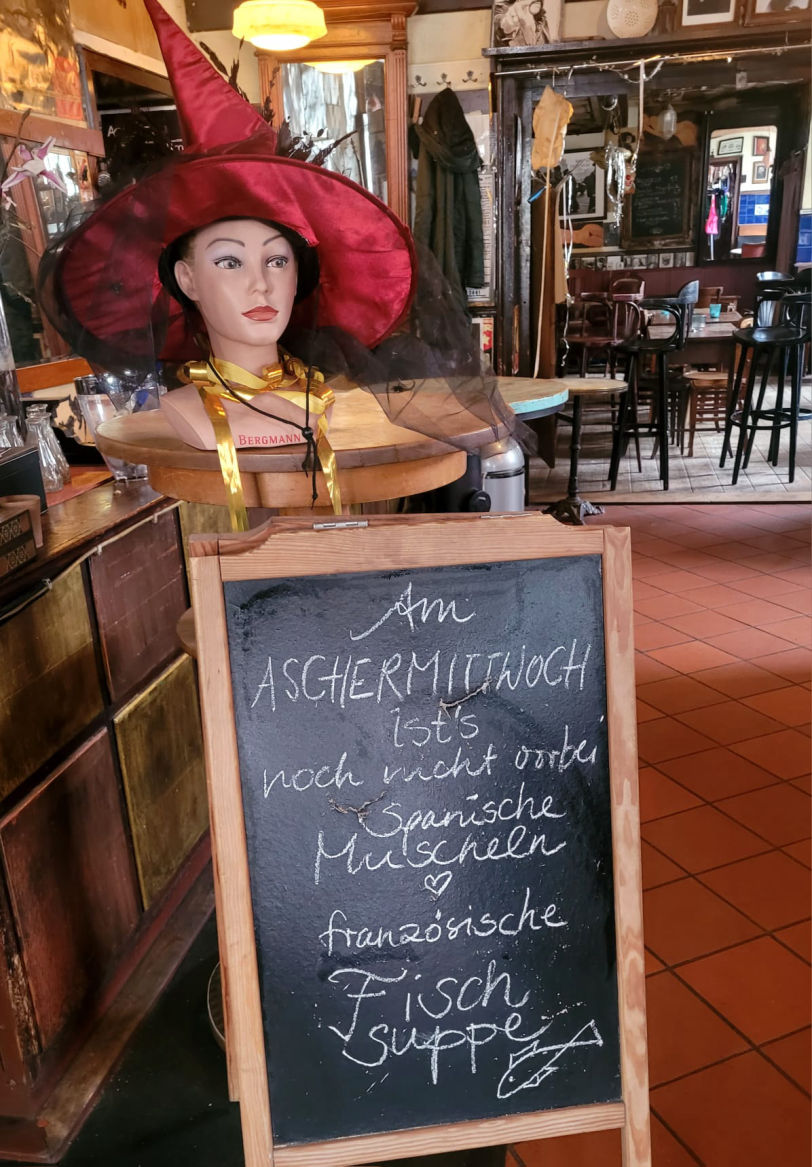 BERGMANN
Am
ASCHERMITTWOCH
ist's
noch nicht vorbei
Spanische
Muscheln
französische
Fisch
suppe